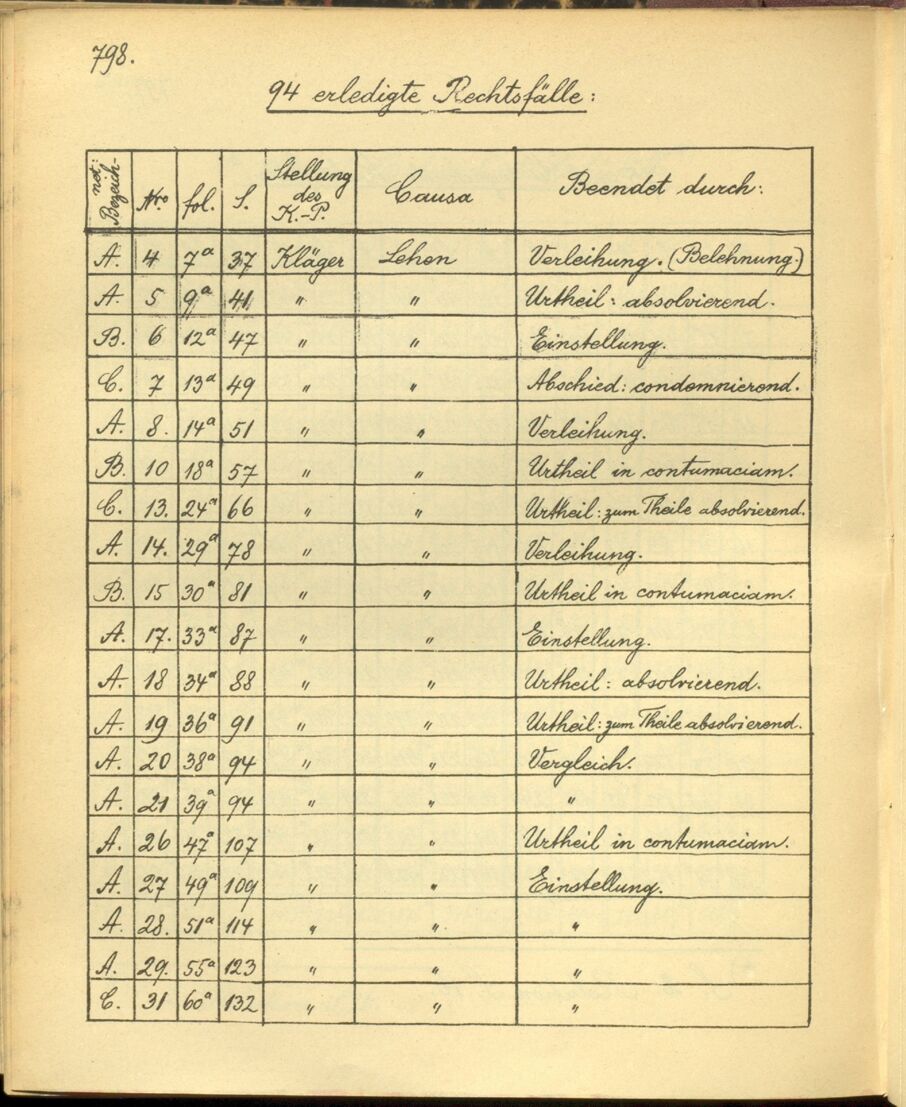 798.
94 erledigte Rechtsfälle:
not: Bezeich- Nro fol. S. Stellung des K.-P. Causa Beendet durch:
A. 4 7a 37 Kläger Lehen Verleihung. (Belehnung.)
A. 5 9a 41 " " Urtheil: absolvierend.
B. 6 12a 47 " " Einstellung.
C. 7 13a 49 " " Abschied: condemnierend.
A. 8. 14a 51 " " Verleihung.
B. 10 18a 57 " " Urtheil in contumaciam.
C. 13. 24a 66 " " Urtheil: zum Theile absolvierend.
A. 14. 29a 78 " " Verleihung.
B. 15 30a 81 " " Urtheil in contumaciam.
A. 17. 33a 87 " " Einstellung.
A. 18 34a 88 " " Urtheil: absolvierend.
A. 19 36a 91 " " Urtheil: zum Theile absolvierend.
A. 20 38a 94 " " Vergleich.
A. 21 39a 94 " " "
A. 26 47a 107 " " Urtheil in contumaciam.
A. 27 49a 109 " " Einstellung.
A. 28. 51a 114 " " "
A. 29. 55a 123 " " "
C. 31 60a 132 " " "